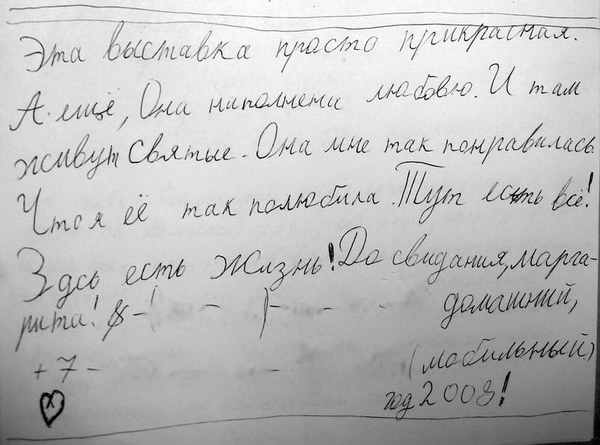 Эта выставка просто прикрасная.
А ещё, Она наполнени любовю. И там
живут Святые. Она мне так понравилась
Что я её так полюбила. Тут есть всё!
Здсь есть Жизнь! До свидания, марга-
рита! 8 - домашний,
+7 - (мобильный)
год 2008!